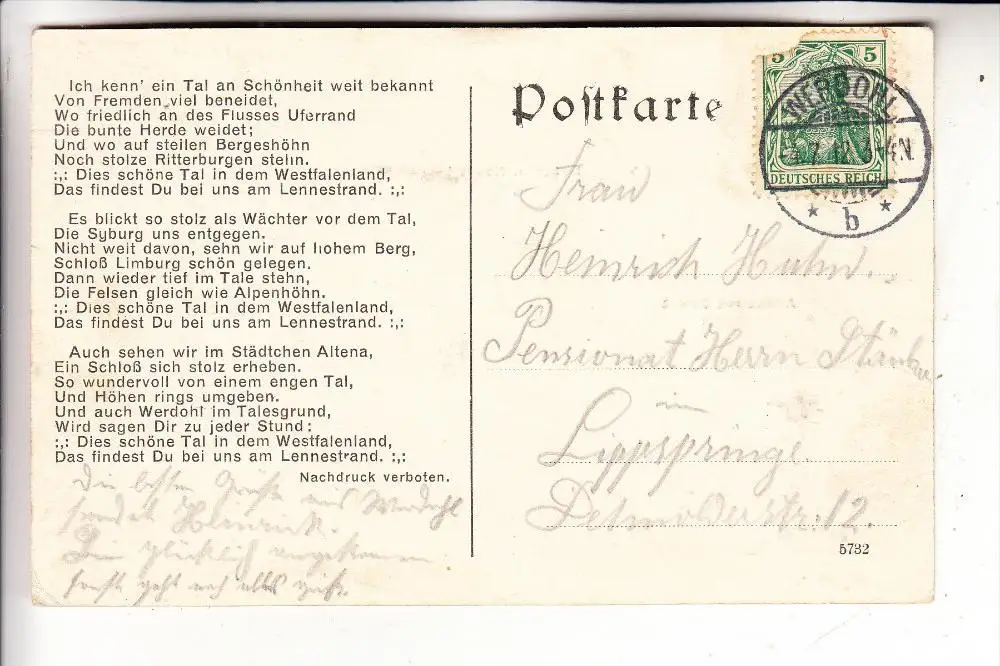 Ich kenn' ein Tal an Schönheit weit bekannt
Von Fremden viel beneidet,
Wo friedlich an des Flusses Uferrand
Die bunte Herde weidet;
Und wo auf steilen Bergeshöhn
Noch stolze Ritterburgen stehn.
:,: Dies schöne Tal in dem Westfalenland,
Das findest Du bei uns am Lennestrand. :,:
Es blickt so stolz als Wächter vor dem Tal,
Die Syburg uns entgegen.
Nicht weit davon, sehn wir auf hohem Berg,
Schloß Limburg schön gelegen.
Dann wieder tief im Tale stehn,
Die Felsen gleich wie Alpenhöhn.
:,: Dies schöne Tal in dem Westfalenland,
Das findest Du bei uns am Lennestrand. :,:
Auch sehen wir im Städtchen Altena,
Ein Schloß sich stolz erheben.
So wundervoll von einem engen Tal,
Und Höhen rings umgeben.
Und auch Werdohl im Talesgrund,
Wird sagen Dir zu jeder Stund:
:,: Dies schöne Tal in dem Westfalenland,
Das findest Du bei uns am Lennestrand. :,:
Nachdruck verboten.
Die besten Grüße aus Werdohl
sendet Heinrich.
Bin glücklich angekommen
sonst geht noch alles gut.
Postkarte
5 5
DEUTSCHES REICH
WERDOHL
* b *
Frau
Heinrich Huhn.
Pensionat Herrn
in
Lippspringe
Detmolderstr. 12.
5732